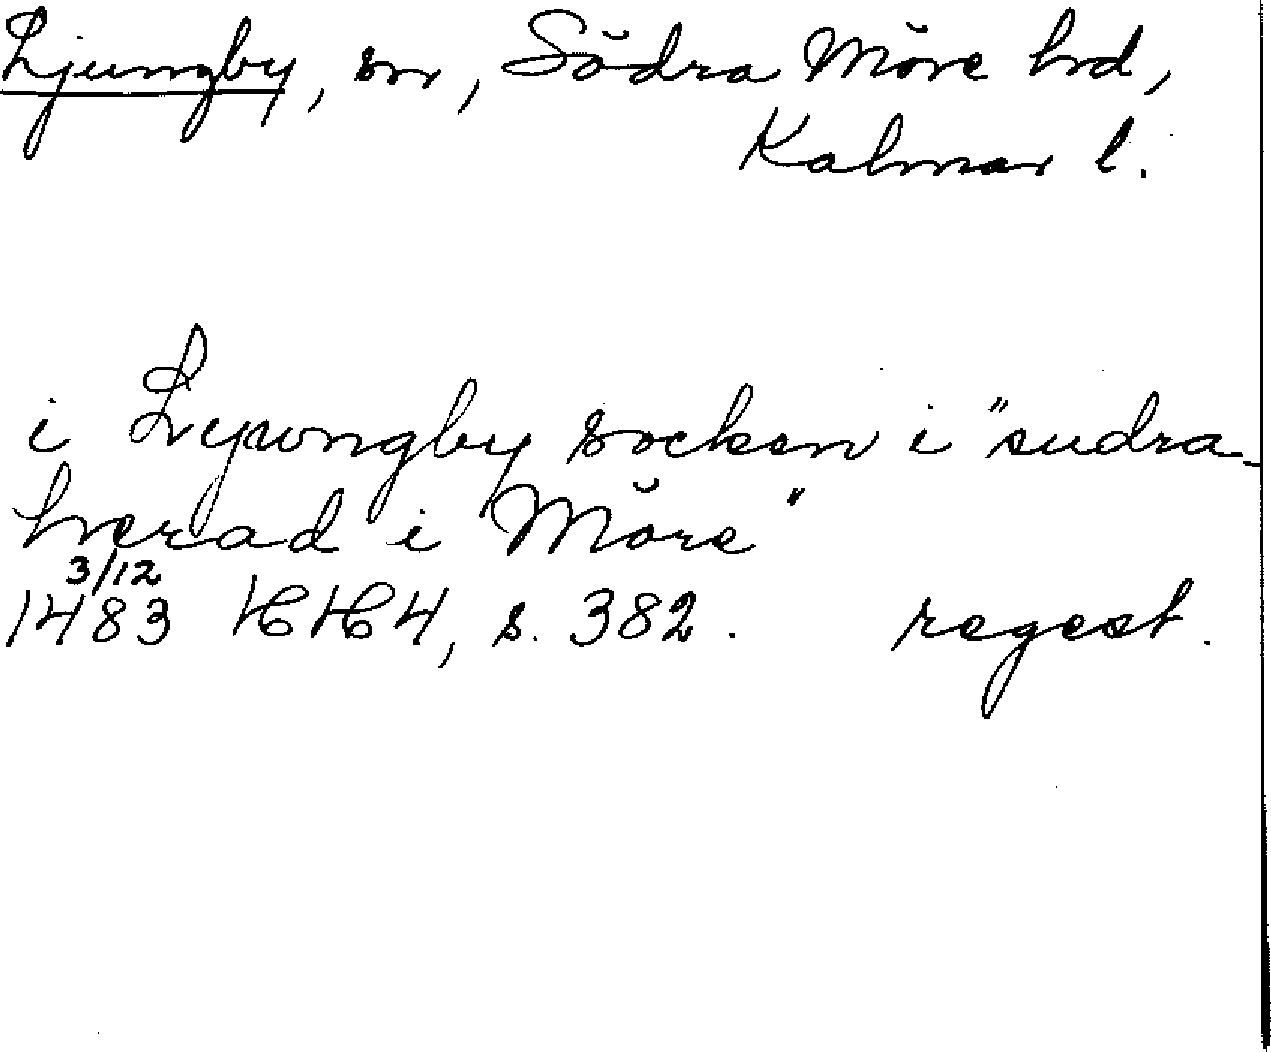 Ljungby, sn, Södra Möre hrd,
Kalmar l.
i Lyungby socken i "sudra-
herad i Möre"
3/12
1483 HH 4, s. 382. regest.